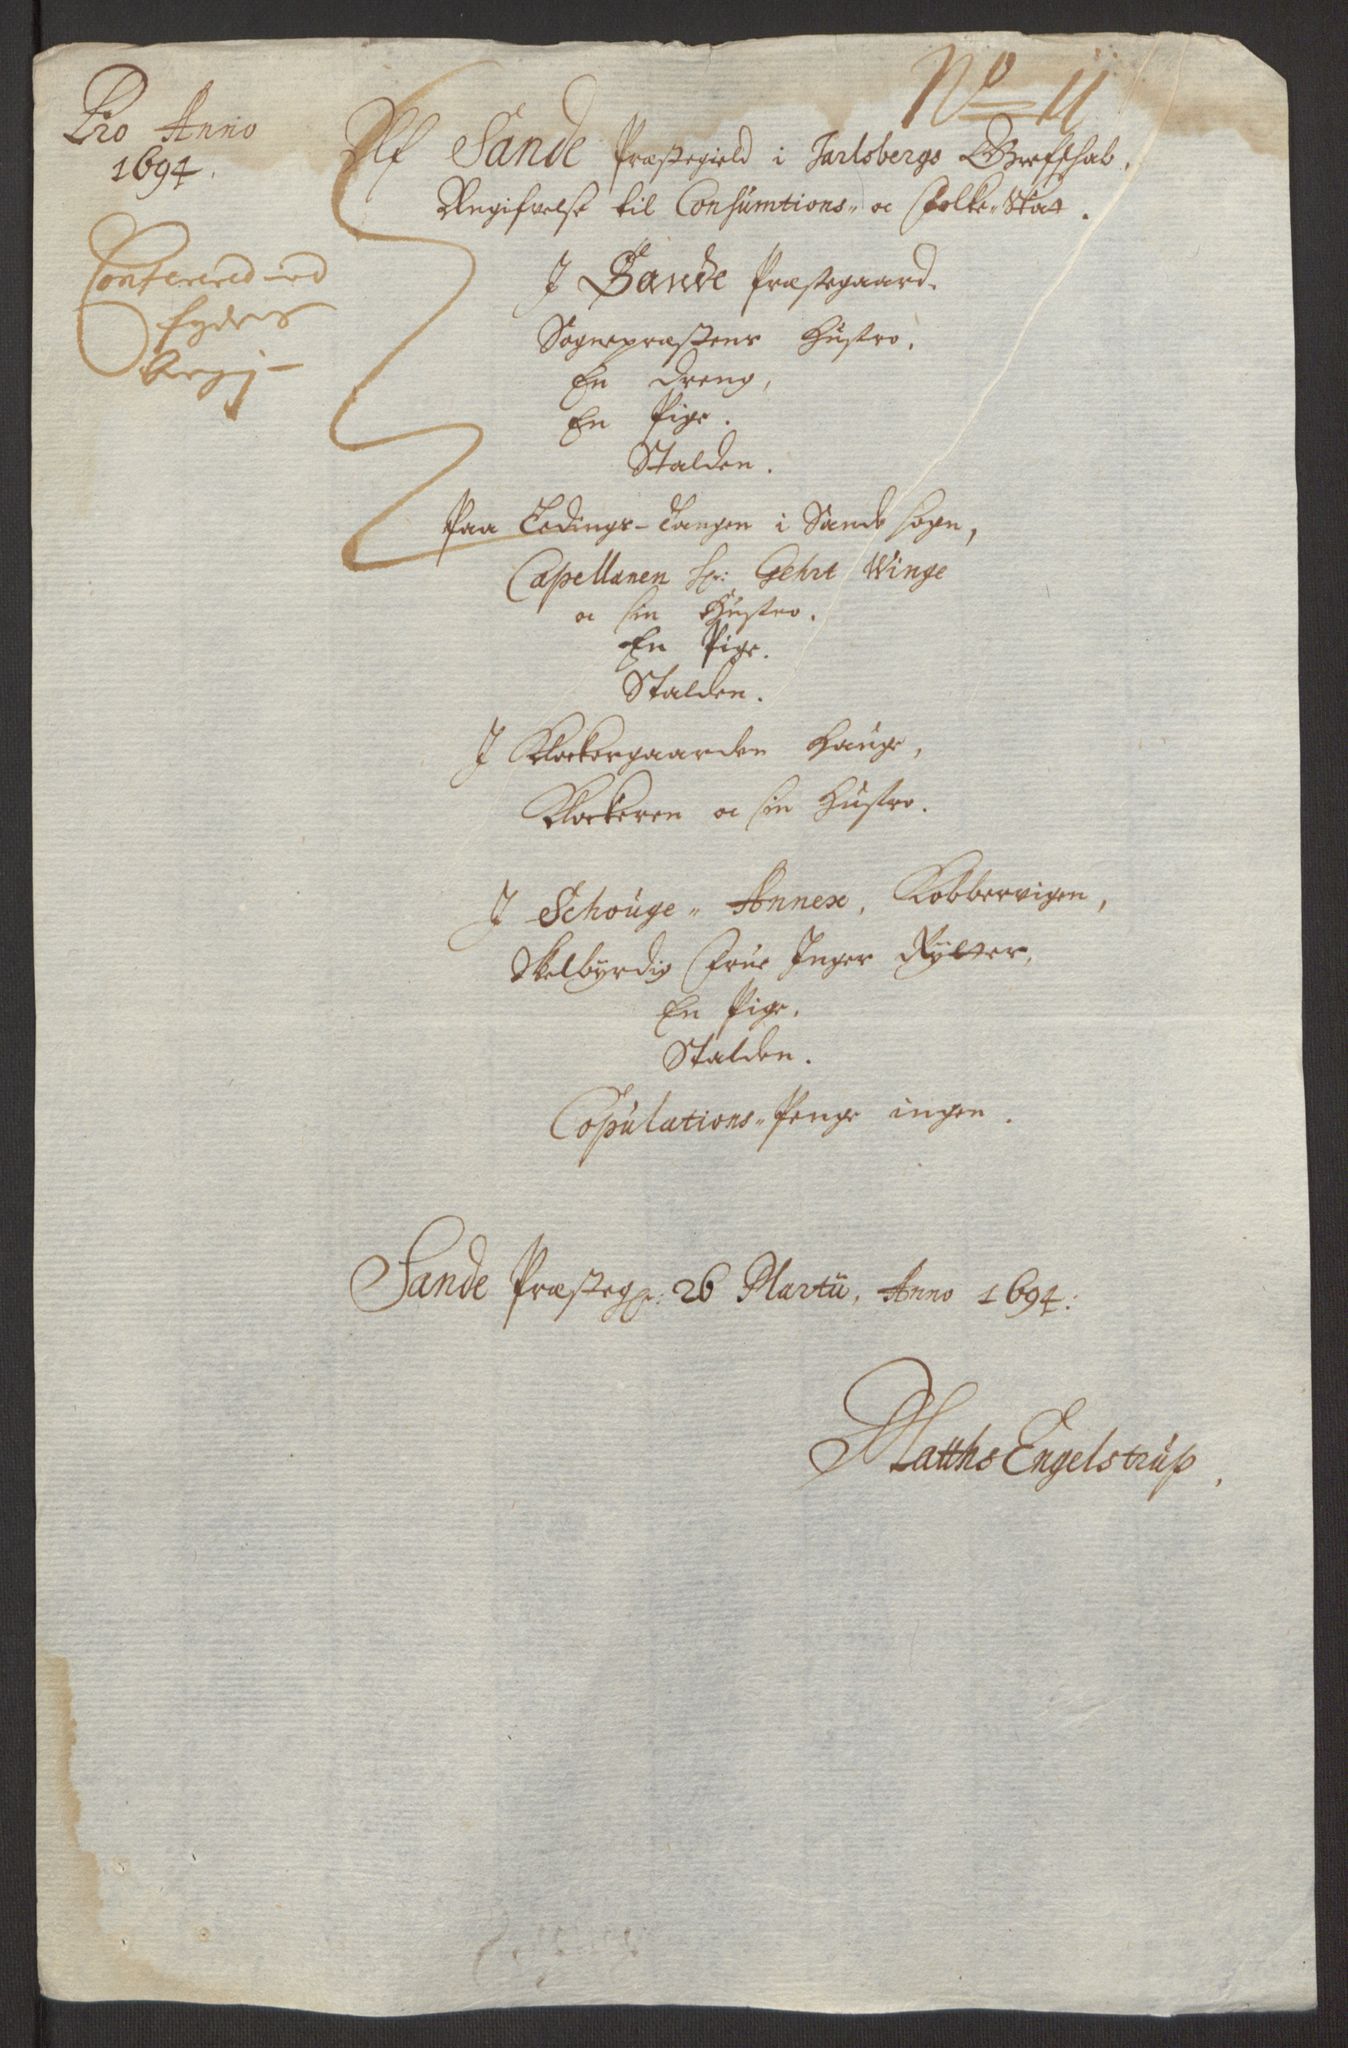 No 11
Pro Anno
1694.
Af Sande Præstegield i Jarlsbergs Grefschab,
Angifvelse til Consumtions- oc Folke-Skatt.
J Sande Præstegaard.
Sognepræstens Hustro.
En dreng,
En Pige.
Stalden.
Paa Tedings-Tangen i Sande sogn,
Capellanen Hr: Gehrt Winge
oc sin Hustro.
En Pige.
Stalden.
J Klockergaarden Hauge,
Klockeren oc sin Hustro.
J Schouge-Annex, Kobbervigen,
Velbyrdig Frue Jnger Rytter,
En Pige.
Stalden.
Copulations-Penge ingen.
Sande Præsteg: 26 Martii, Anno 1694:
Matths Engelstrup.